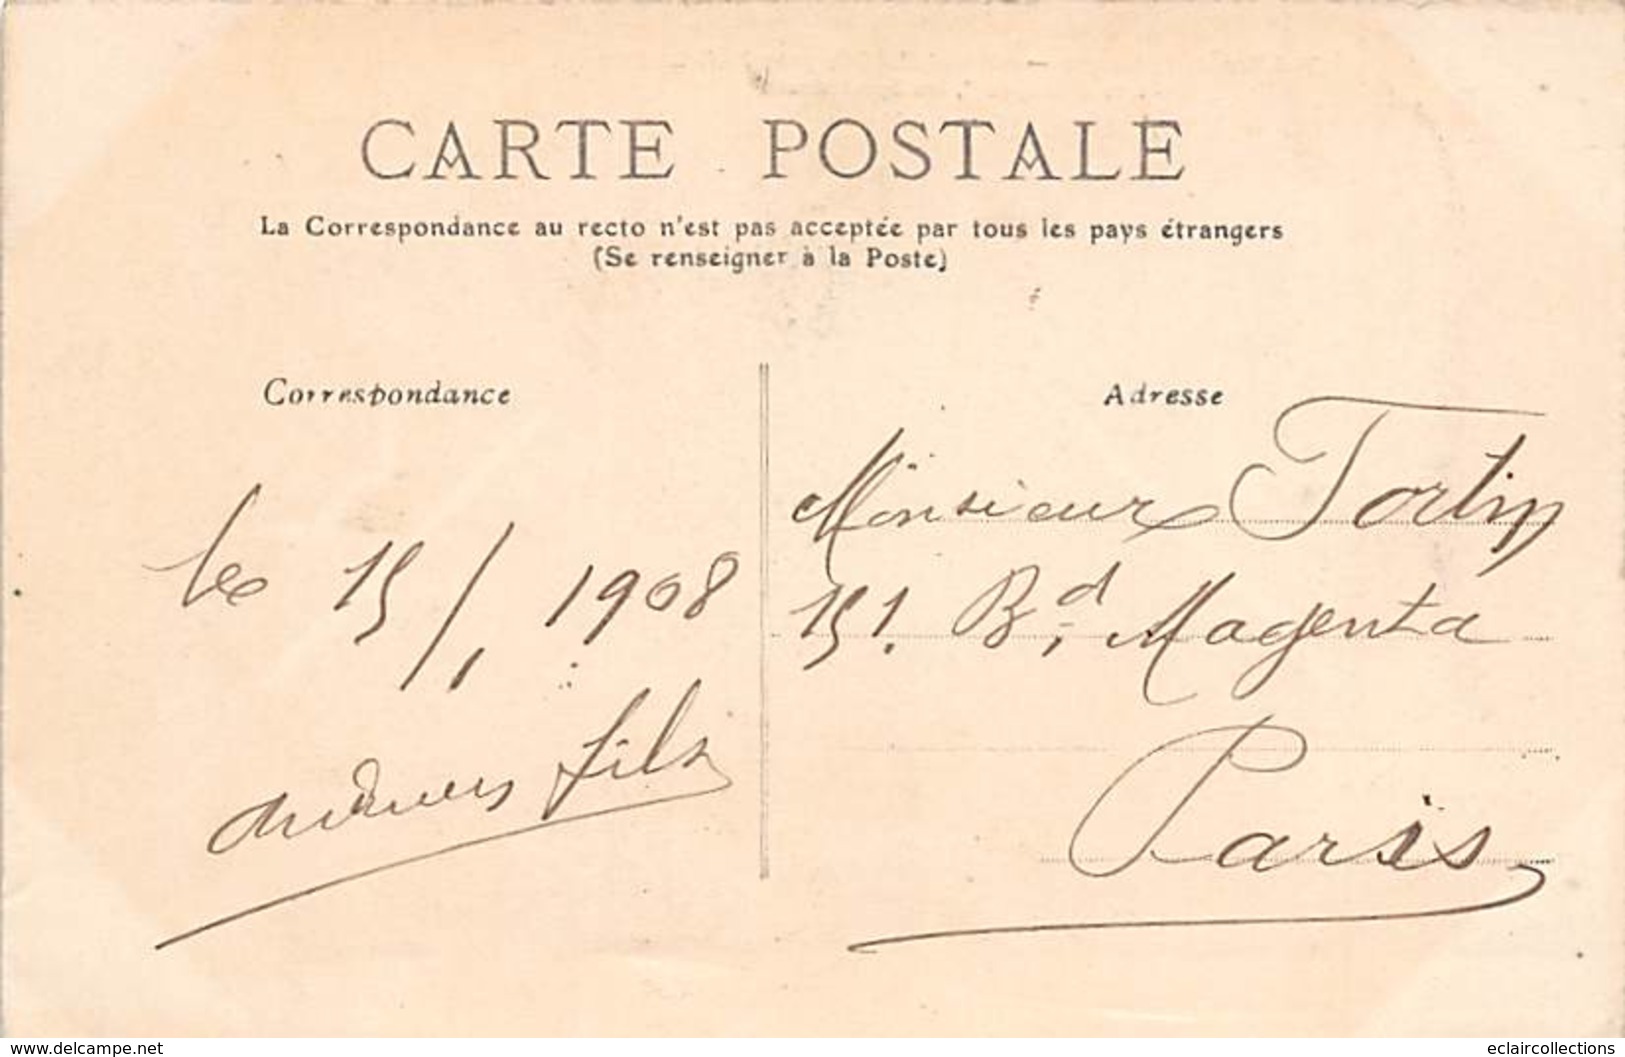 CARTE POSTALE
La Correspondance au recto n'est pas acceptée par tous les pays étrangers
(Se renseigner à la Poste)
Correspondance
le 15/1 1908
fils
Adresse
Monsieur Fortin
151. Bd. Magenta
Paris
www.delcampe.net
eclaircollections